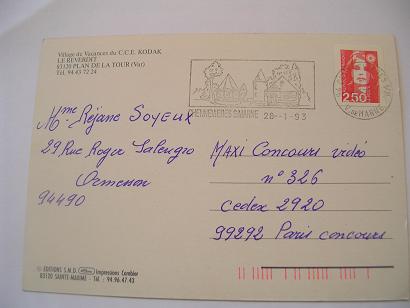 Village de Vacances du C.C.E. KODAK
LE REVERDIT
83120 PLAN DE LA TOUR (Var)
Tél. 94 43 72 24
2,50
CHENNEVIERES S/MARNE 28-1-93
Mme Réjane SOYEUX
29 Rue Roger Salengro
Ormesson
94490
MAXI CONCOURS vidéo
n° 326
cedex 2920
99292 Paris concours
© EDITIONS S.M.D. Impressions Combier
83120 SAINTE-MAXIME - Tél. : 94.96.47.43